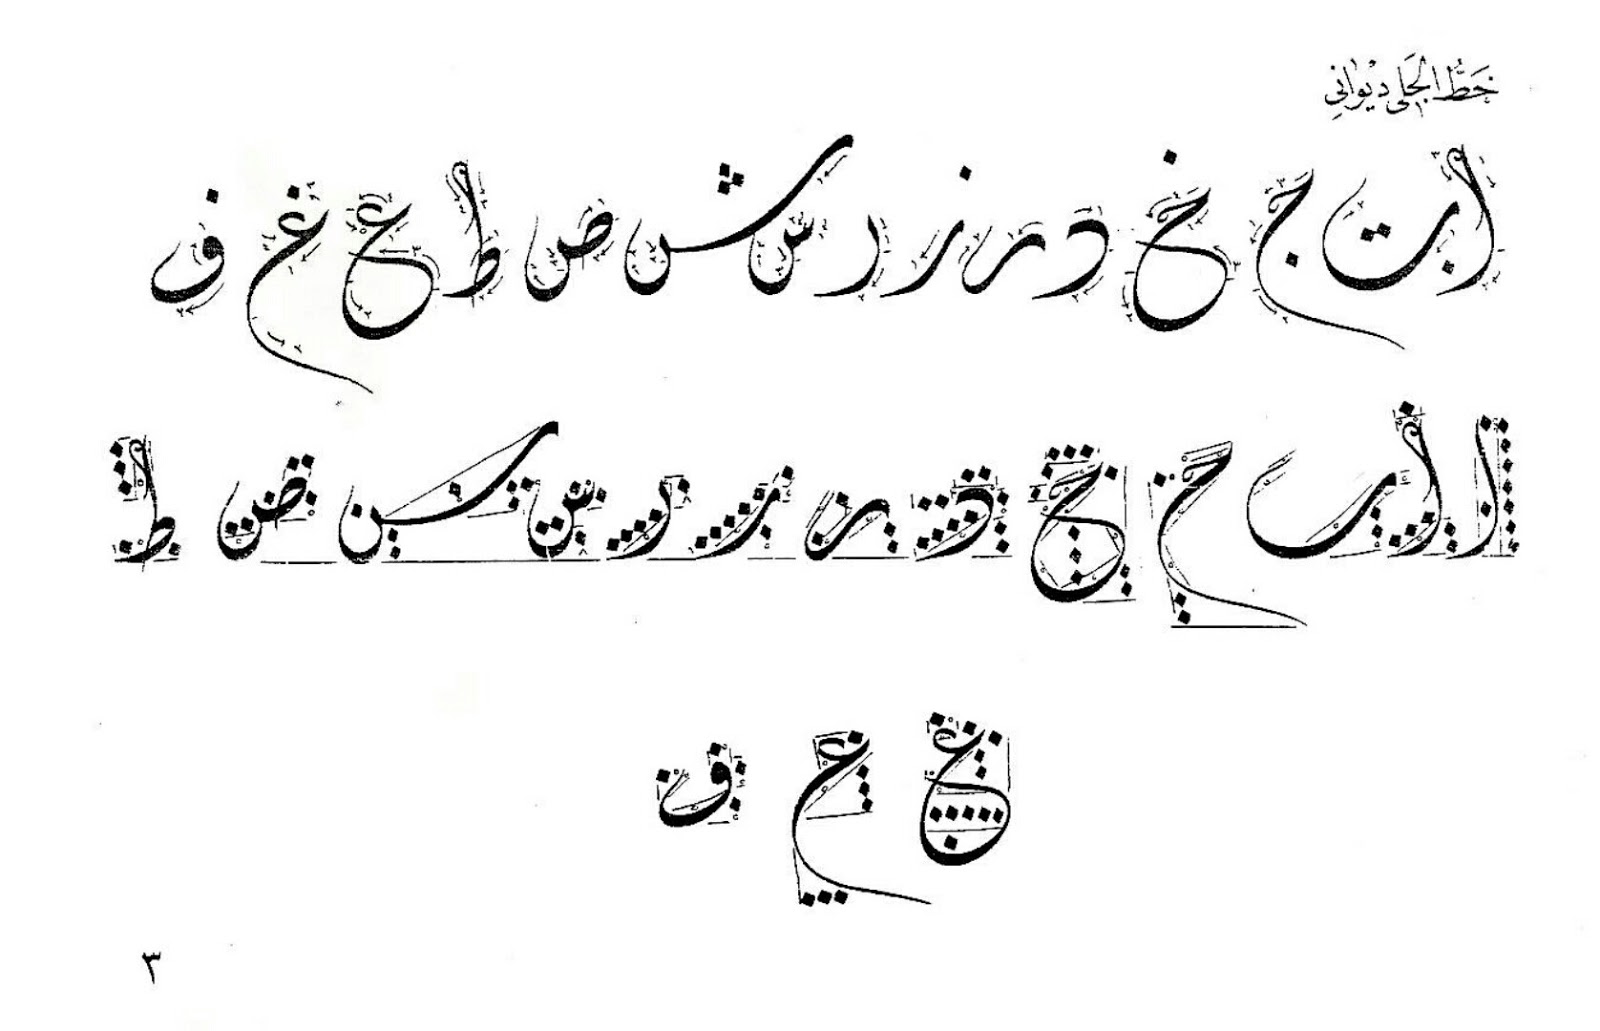 خَطُّ الجَلي دِيْوَاني
ا ب ت ج خ د ر ز ر س ش ص ط ع غ ف
ا ا ب ح ح د ر ر ر س س ص ط
ع ع ف
٣